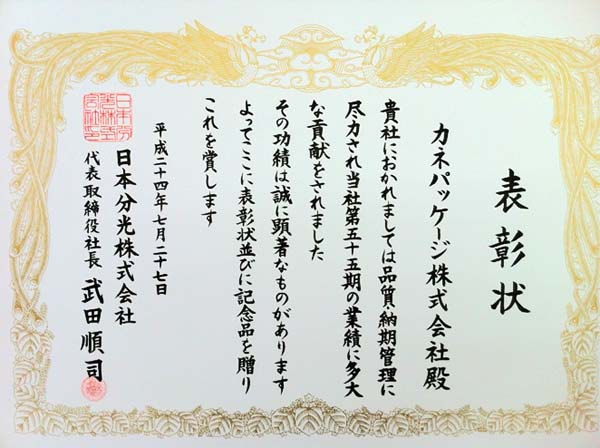 表彰状
カネパッケージ株式会社殿
貴社におかれましては品質・納期管理に
尽力され当社第五十五期の業績に多大
な貢献をされました
その功績は誠に顕著なものがあります
よってここに表彰状並びに記念品を贈り
これを賞します
平成二十四年七月二十七日
日本分光株式会社
代表取締役社長 武田順司